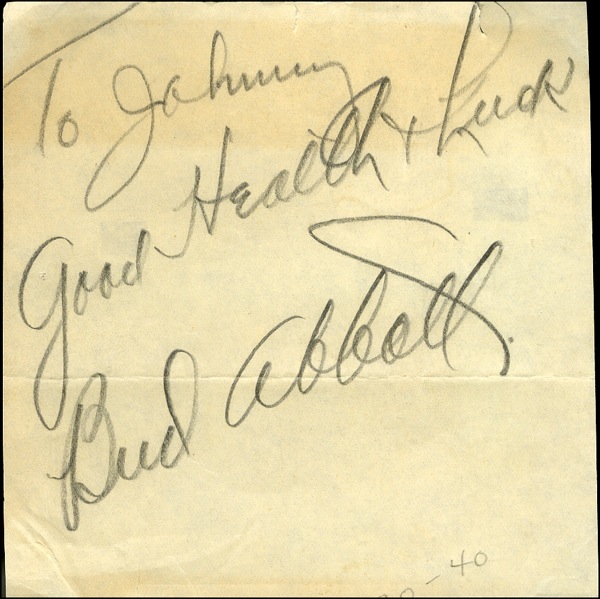 To Johnny
Good Health & Luck
Bud Abbott
-40